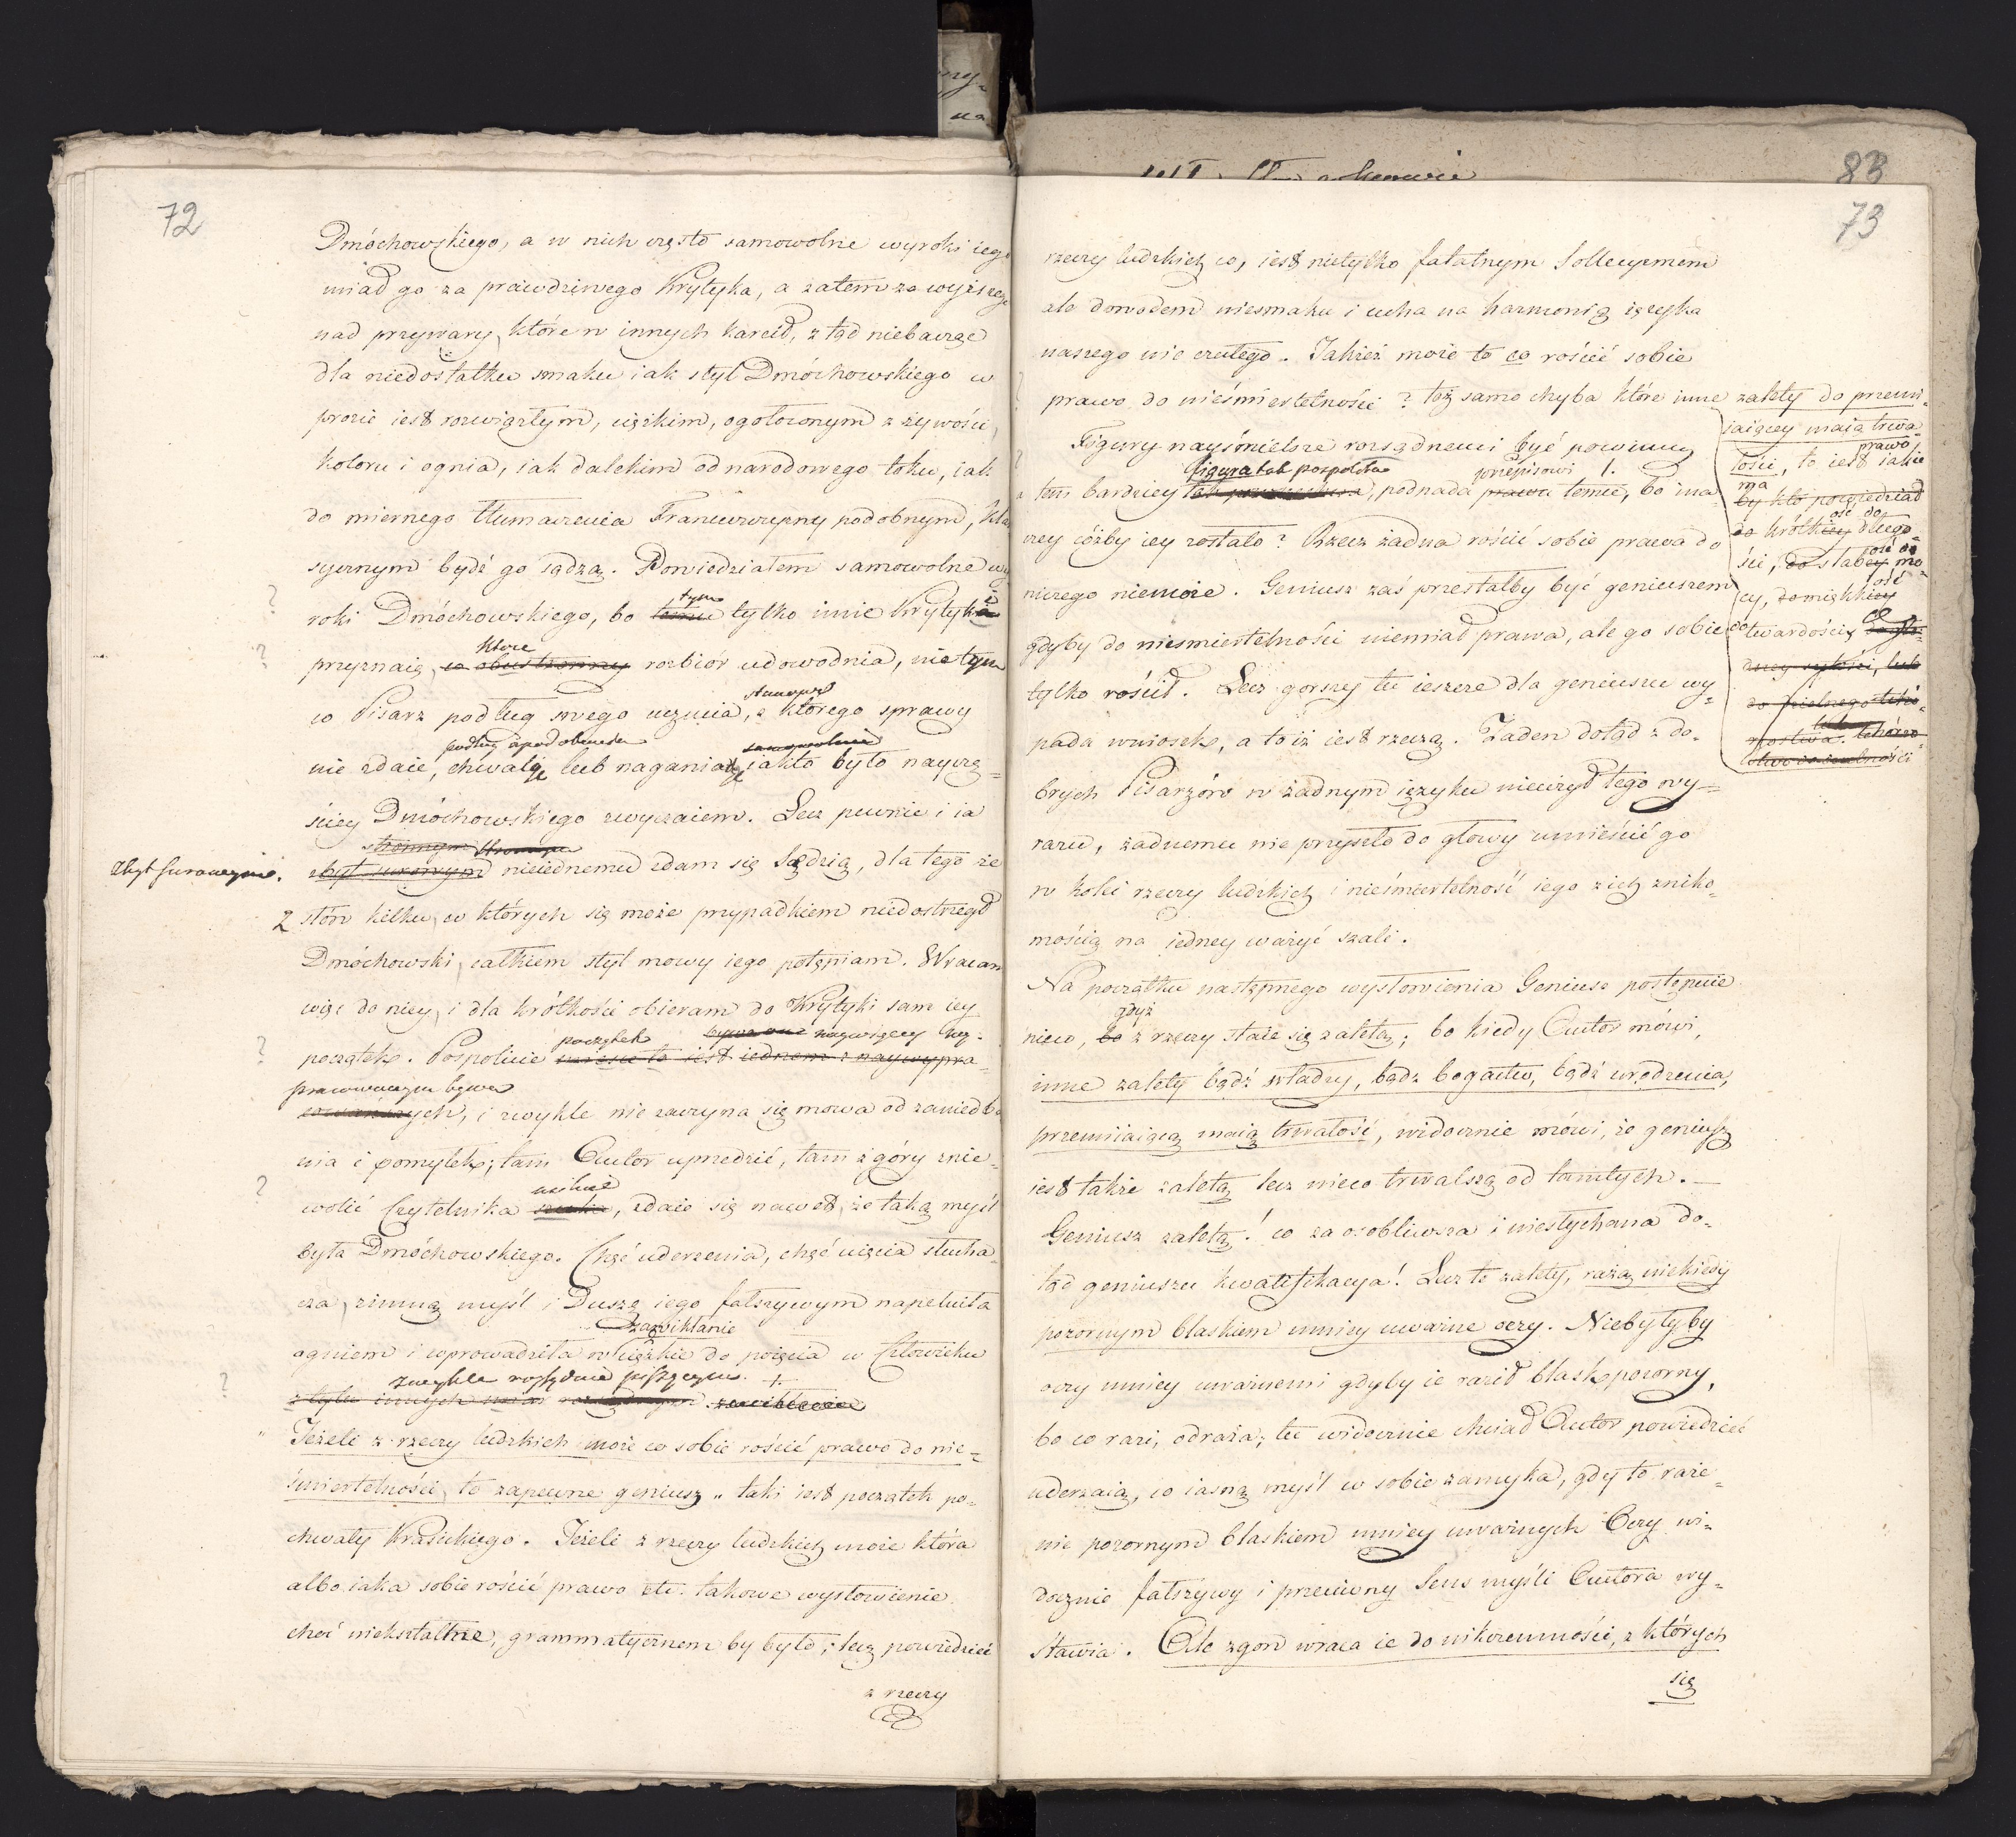 72
Dmóchowskiego, a w nich często samowolne wyroki iego
miał go za prawdziwego Krytyka, a zatem za wyższego
nad przywary, które w innych karcił, z tąd niebacząc
dla niedostatku smaku iak styl Dmóchowskiego w
prozie iest rozwiązłym, ciężkim, ogołoconym z żywości,
koloru i ognia, iak dalekim od narodowego toku, iak
do miernego tłumaczenia Francuzczyzny podobnym, kla
sycznym bydź go sądzą. Powiedziałem samowolne wy
tym
roki Dmóchowskiego, bo temu tylko imie Krytyka
które
przyznaię, co obustronny rozbiór udowodnia, nie tym
co Pisarz podług swego uczucia, z którego sprawy
podług upodobania samowolnie
nie zdaie, chwalę lub nagania iak to było naycze=
ściey Dmóchowskiego zwyczaiem. Lecz pewnie i ia
Zbyt surowym. zbyt surowym nieiednemu zdam się Sędzią, dla tego że
2 słów kilku, w których się może przypadkiem niedostrzegł
Dmóchowski, całkiem styl mowy iego potępiam. Wracam
więc do niey, i dla krótkości obieram do Krytyki sam iey
początek bywa naywięcey wy-
początek. Pospolicie to iest iednem z naywypra-
pracowanym bywa
cowańszych, i zwykle nie zaczyna się mowa od zaniedba
nia i pomyłek; tam Autor uprzedzić, tam z góry znie=
usiłuie
wolić Czytelnika szuka, zdaie się nawet, że taką myśl
była Dmóchowskiego. Chęć uderzenia, chęć uięcia słucha=
cza, zimną myśl i Duszę iego fałszywym napełniła
zawikłanie
ogniem i wprowadziła w ciężkie do poięcia w Człowieku
zwykle rozsądnie piszącym. +
z tylu innych miar zawikłanie
" Jeżeli z rzeczy ludzkich może co sobie rościć prawo do nie=
śmiertelności, to zapewne geniusz „ taki iest początek po=
chwały Krasickiego. Jeżeli z rzeczy ludzkich może która
albo iaka sobie rościć prawo etc. takowe wysłowienie
choć niekształtne, grammatycznem by było; lecz powiedzieć
z rzeczy
83
73
rzeczy ludzkich co, iest nietylko fatalnym Sollecyzmem
ale dowodem niesmaku i ucha na harmonią ięzyka
naszego nie czułego. Jakież może to co rościć sobie
prawo do nieśmiertelności? toż samo chyba które inne zalety do przemi-
iaiącey maią trwa-
prawo
łości, to iest iakie
ma
by kto powiedział
ość do
do krótkiey długo-
ści, do słabey mo-
cy, do miękkiey
twardości,
Figury nayśmielsze rozsądnemi być powinny
figura tak pospolita przepisowi
tem bardziey, podpada prawu temu, bo ina
czey cóżby iey zostało? Rzecz żadna rościć sobie prawa do
niczego niemoże. Geniusz zaś przestałby być geniuszem
gdyby do niesmiertelności niemiał prawa, ale go sobie
tylko rościł. Lecz gorszy tu ieszcze dla geniuszu wy=
pada wniosek, a to iż iest rzeczą. Żaden dotąd z do-
brych Pisarzów w żadnym ięzyku nieużył tego wy=
razu, żadnemu nie przyszło do głowy umieścić go
w kolei rzeczy ludzkich i nieśmiertelność iego z ich zniko-
mością na iedney ważyć szali.
Na początku następnego wysłowienia Geniusz postępuie
gdyż
nieco, bo z rzeczy staie się zaletą; bo kiedy Autor mówi,
inne zalety bądź władzy, bądź bogactw, bądź urodzenia,
przemiiaiącą maią trwałość, widocznie mówi, że geniusz
iest także zaletą lecz nieco trwalszą od tamtych. —
Geniusz zaletą! co za osobliwsza i niesłychana do-
tąd geniuszu kwalifikacya! Lecz te zalety, rażą niekiedy
pozornym blaskiem mniey uważne oczy. Niebyłyby
oczy mniey uważnemi gdyby ie raził blask pozorny,
bo co razi, odraża; tu widocznie chciał Autor powiedzieć
uderzaią, co iasną myśl w sobie zamyka, gdy to raże=
nie pozornym blaskiem mniey uważnych Oczy wi=
docznie fałszywy i przeciwny Sens myśli Autora wy=
stawia. Ale zgon wraca ie do nikczemności, z których
się